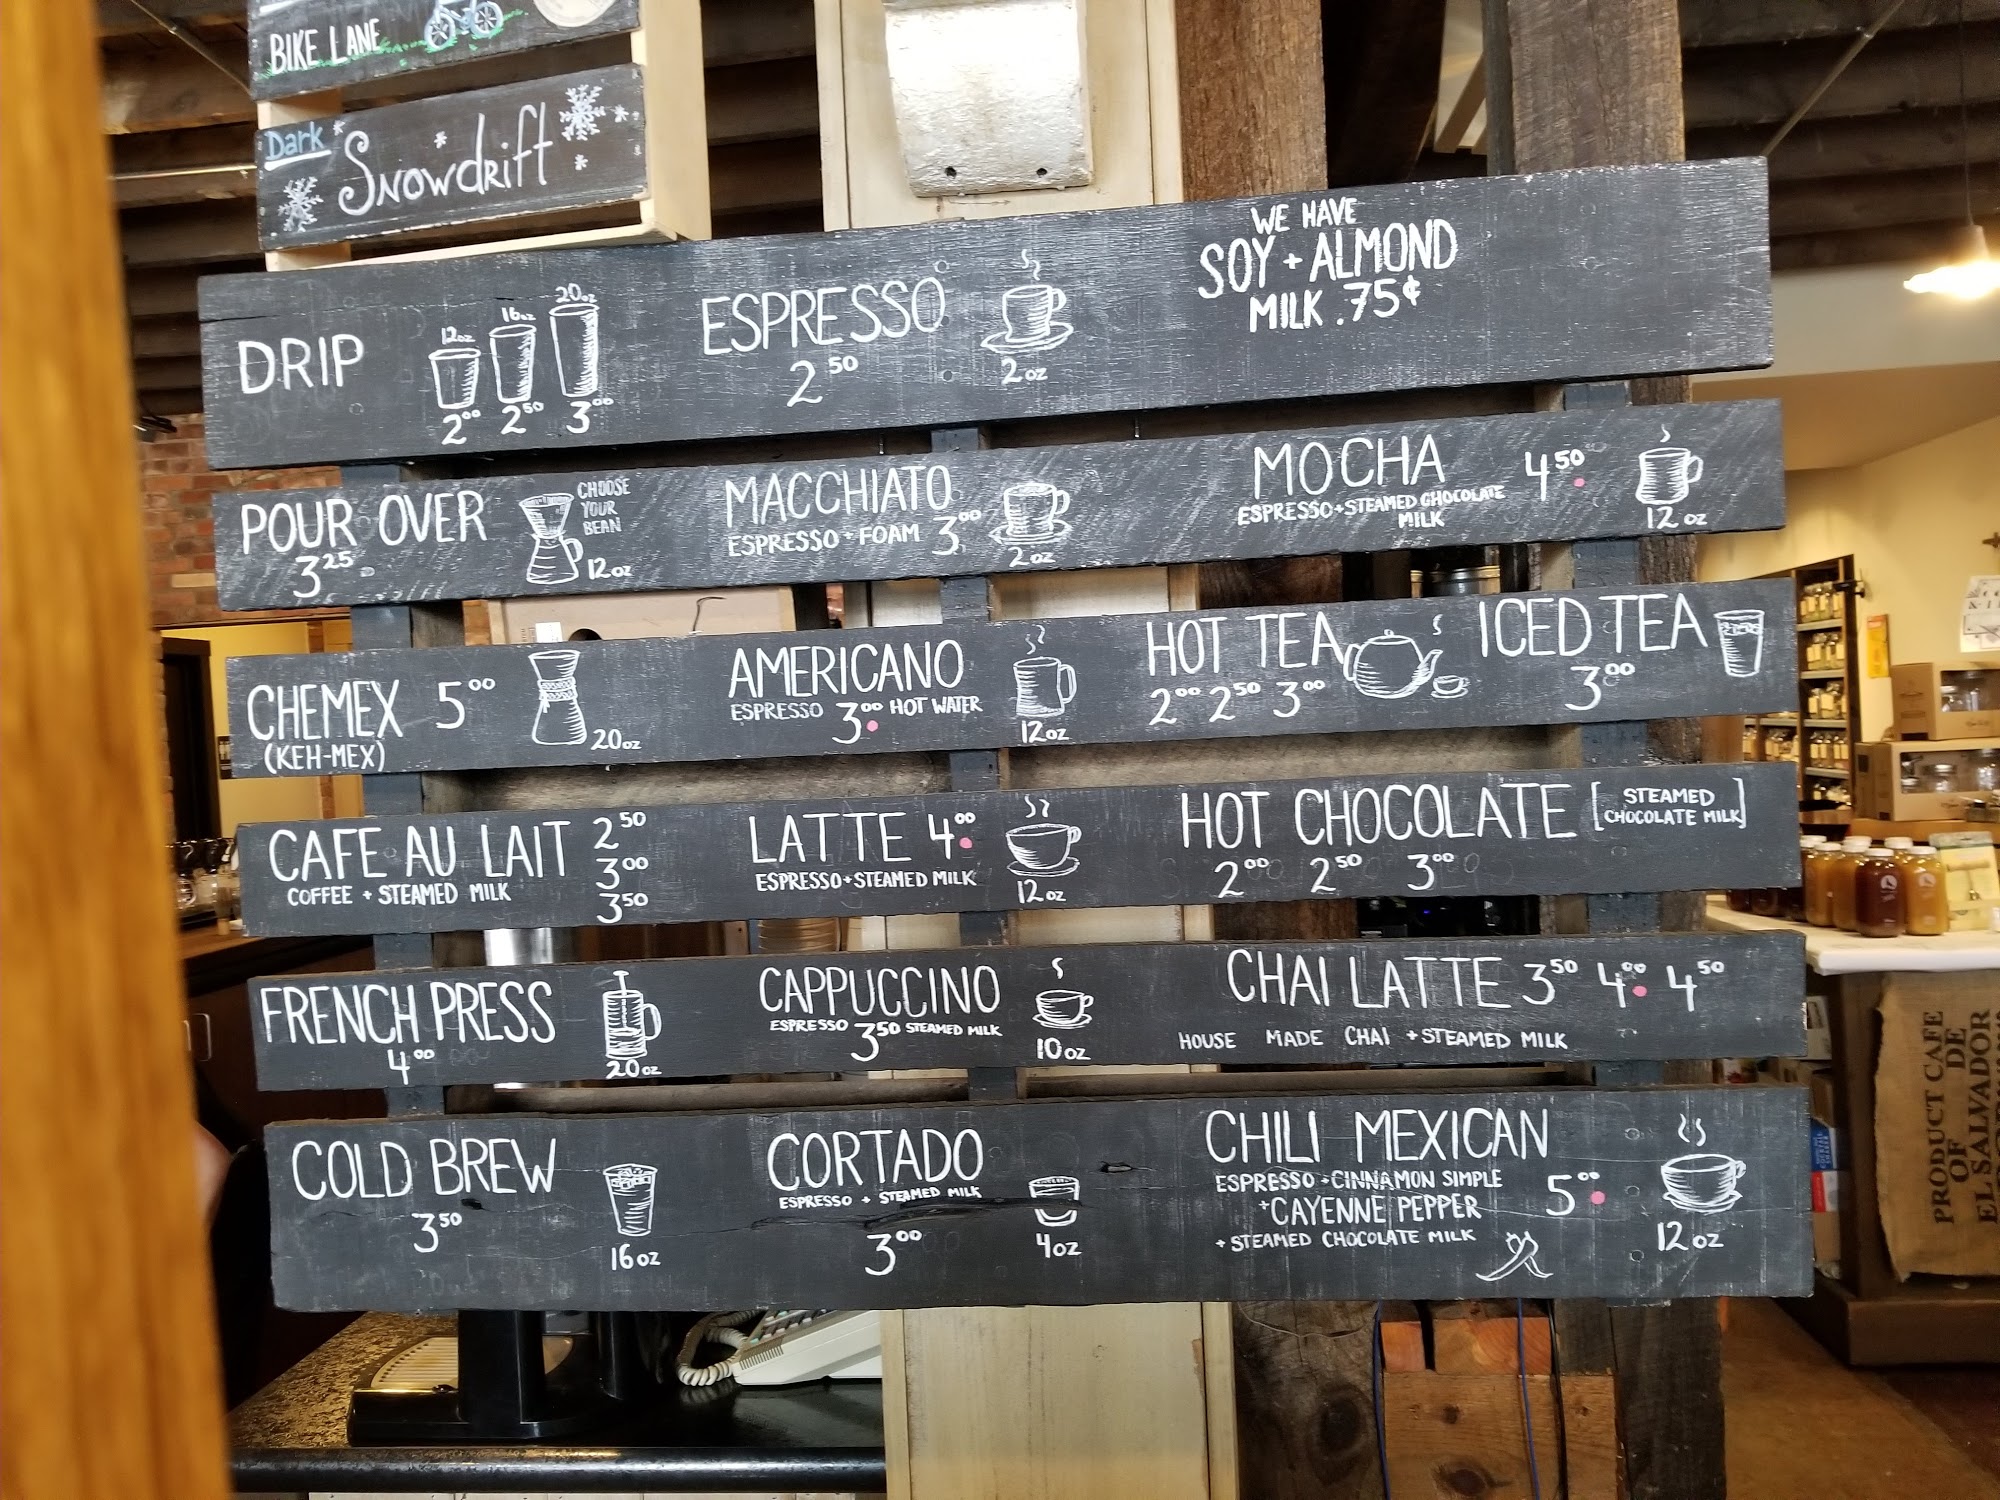 BIKE LANE
Dark
Snowdrift
WE HAVE
SOY + ALMOND
MILK .75¢
DRIP
12oz 16oz 20oz
2.00 2.50 3.00
ESPRESSO
2.50
2oz
POUR OVER
3.25
CHOOSE
YOUR
BEAN
12oz
MACCHIATO
ESPRESSO + FOAM 3.00
2oz
MOCHA 4.50
ESPRESSO + STEAMED CHOCOLATE
MILK
12oz
CHEMEX 5.00
(KEH-MEX)
20oz
AMERICANO
ESPRESSO 3.00 HOT WATER
12oz
HOT TEA
2.00 2.50 3.00
ICED TEA
3.00
CAFE AU LAIT 2.50
3.00
COFFEE + STEAMED MILK
3.50
LATTE 4.00
ESPRESSO + STEAMED MILK
12oz
HOT CHOCOLATE [STEAMED
CHOCOLATE MILK]
2.00 2.50 3.00
FRENCH PRESS
4.00
20oz
CAPPUCCINO
ESPRESSO 3.50 STEAMED MILK
10oz
CHAI LATTE 3.50 4.00 4.50
HOUSE MADE CHAI + STEAMED MILK
COLD BREW
3.50
16oz
CORTADO
ESPRESSO + STEAMED MILK
3.00
4oz
CHILI MEXICAN
ESPRESSO + CINNAMON SIMPLE
+ CAYENNE PEPPER 5.00
+ STEAMED CHOCOLATE MILK
12oz
PRODUCT
OF
EL SALVADOR
CAFE
DE